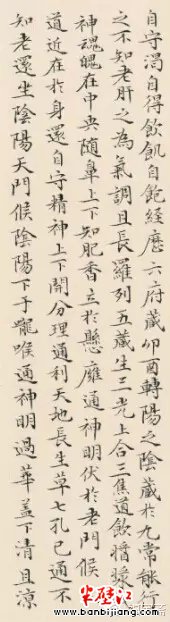 自守渴自得飲飢自飽經歷六府藏卯酉轉陽之陰藏於九常能行
之不知老肝之為氣調且長羅列五藏生三光上合三焦道飲醬漿
神魂魄在中央隨鼻上下知肥香立於懸廱通神明伏於老門候
道近在於身還自守精神上下開分理通利天地長生草七孔已通不
知老還坐陰陽天門候陰陽下于嚨喉通神明過華蓋下清且涼
半壁江
www.banbijiang.com